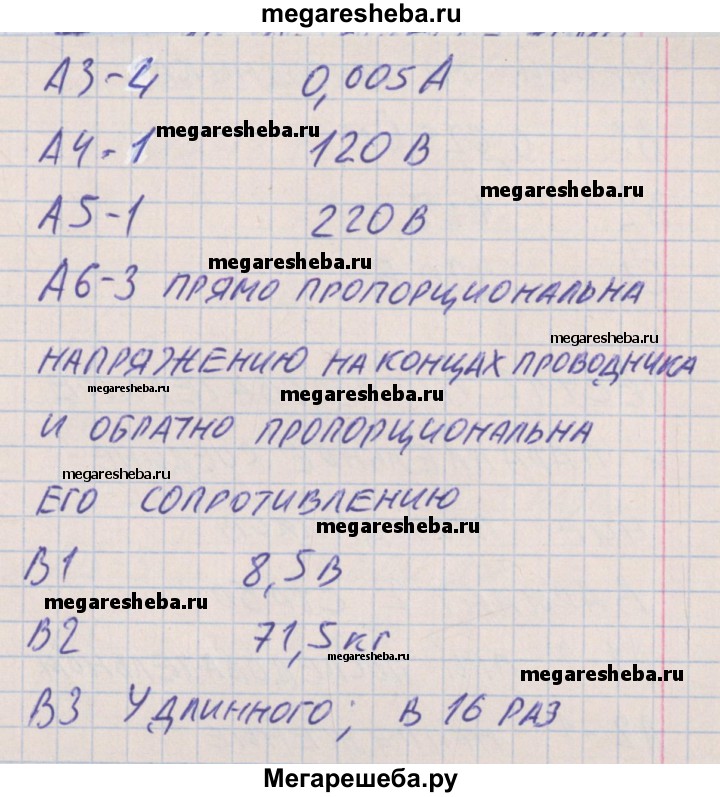 megaresheba.ru
А3-4 0,005А
megaresheba.ru
А4-1 120 В
megaresheba.ru
А5-1 220 В
megaresheba.ru
А6-3 ПРЯМО ПРОПОРЦИОНАЛЬНА
megaresheba.ru
НАПРЯЖЕНИЮ НА КОНЦАХ ПРОВОДНИКА
megaresheba.ru
megaresheba.ru
И ОБРАТНО ПРОПОРЦИОНАЛЬНА
megaresheba.ru
ЕГО СОПРОТИВЛЕНИЮ
megaresheba.ru
В1 8,5В
megaresheba.ru
В2 71,5кг
megaresheba.ru
megaresheba.ru
В3 У ДЛИННОГО; В 16 РАЗ
Мегарешеба.ру